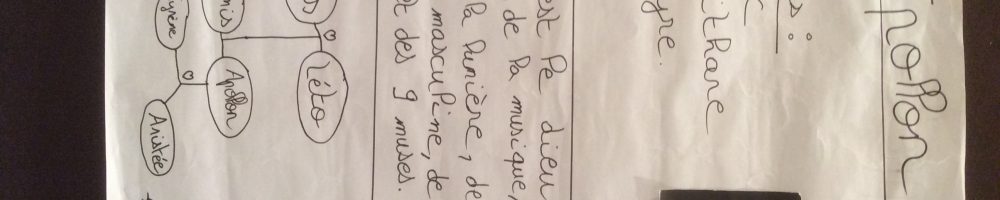 pollon
s :
ithare
yre.
est le dieu
de la musique,
la lumière, de
masculine, de
et des 9 muses.
Léto
mis Apollon
yrène Aristée